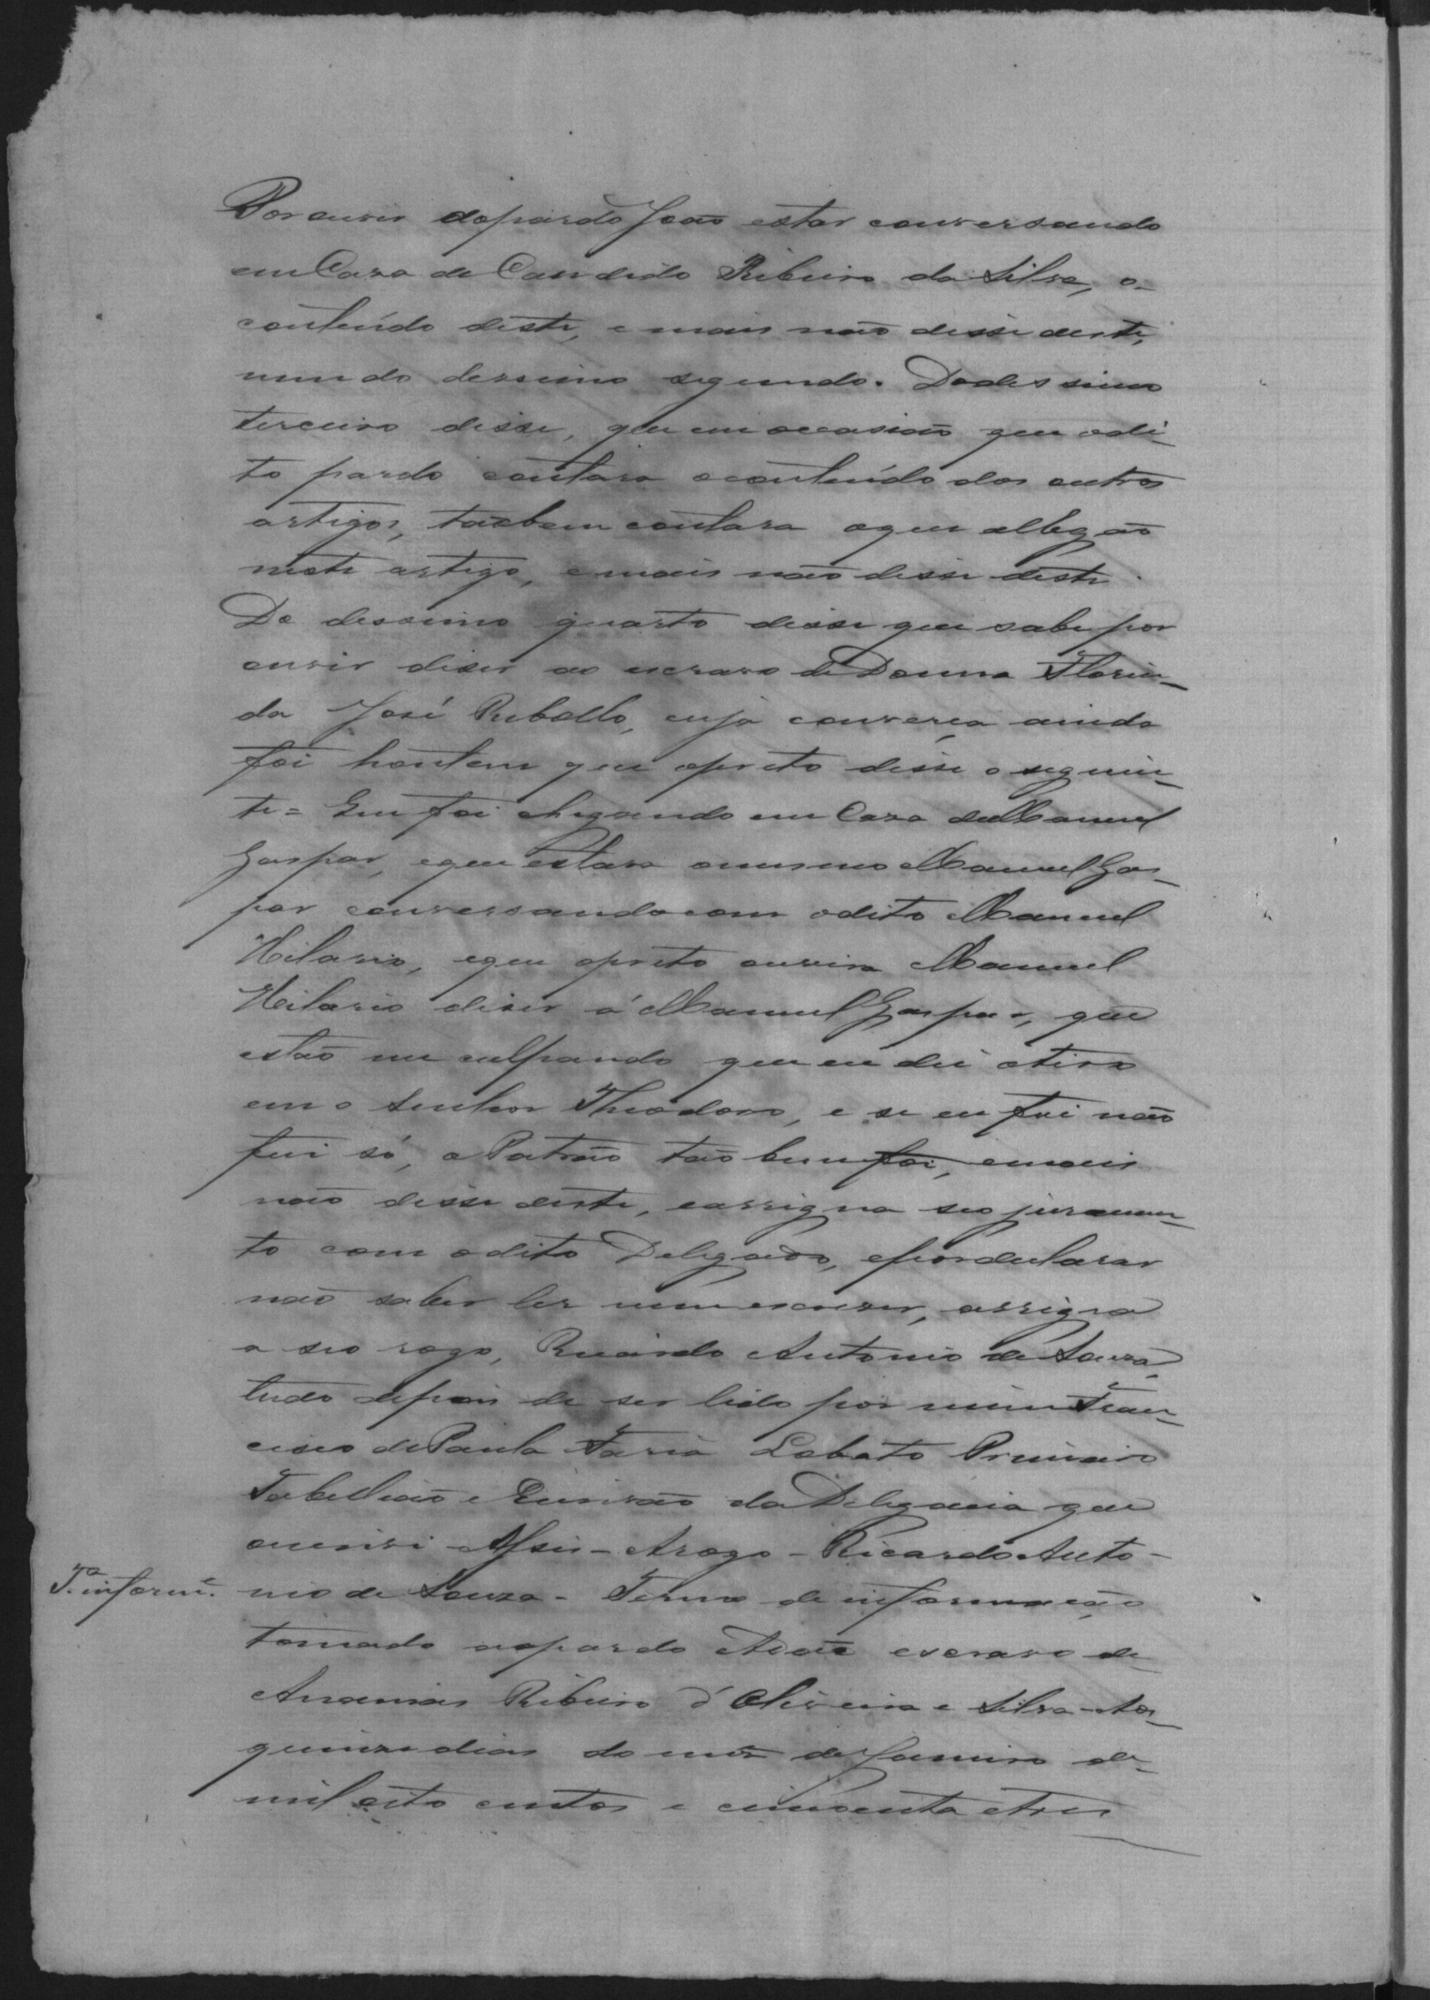 Por ouvir do pardo João estar conversando
em Caza de Candido Ribeiro da Silva, o
conteúdo deste, e mais não disse deste,
nem do dessimo segundo. Do dessimo
terceiro disse, que em occasião que o di-
to pardo contara o conteúdo dos outros
artigos, tãobem contara o que allegão
neste artigo, e mais não disse deste.
Do dessimo quarto disse que sabe por
ouvir diser ao escravo de Donna Florin-
da José Rebello, cuja converça ainda
foi hontem que o preto disse o seguin-
te = Que foi chegando em Caza de Manuel
Gaspar, e que estava o mesmo Manuel Gas-
par conversando com o dito Manuel
Hilario, e que o preto ouvira Manuel
Hilario diser á Manuel Gaspar, que
estão me culpando que eu dei o tiro
em o Senhor Theodoro, e se eu fui não
fui só, o Patrão tão bem foi, e mais
não disse deste, e assigna seo juramen-
to com o dito Delegado, e por declarar
não saber ler nem escrever, assigna
a seo rogo, Ricardo Antonio de Souza,
tudo depois de ser lido por mim Fran-
cisco de Paula Faria Lobato Primeiro
Tabellião e Escrivão da Delegacia que
escrevi - - Arogo - Ricardo Anto-
nio de Souza - Termo de informação
T.ª inform.
tomado ao pardo Adão escravo de
Ananias Ribeiro d'Oliveira e Silva - Aos
quinze dias do mez de Janeiro de
mil oito centos e cincoenta e tres